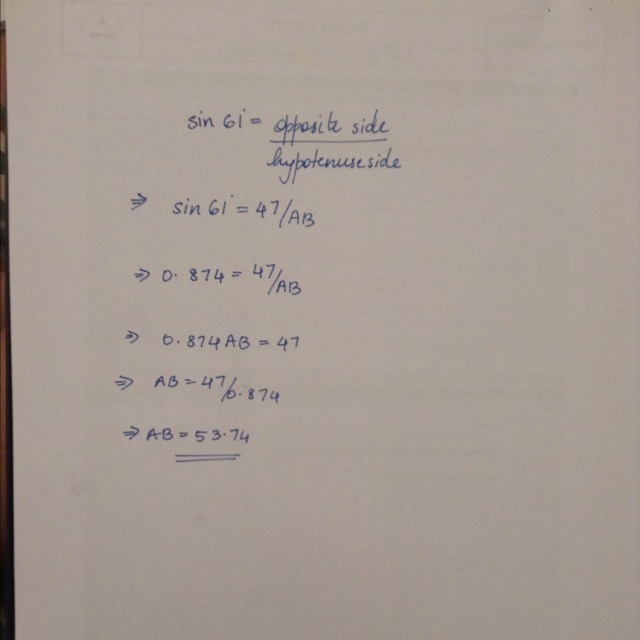 sin 61° = opposite side
hypotenuse side
⇒ sin 61° = 47/AB
⇒ 0.874 = 47/AB
⇒ 0.874 AB = 47
⇒ AB = 47/0.874
⇒ AB = 53.74